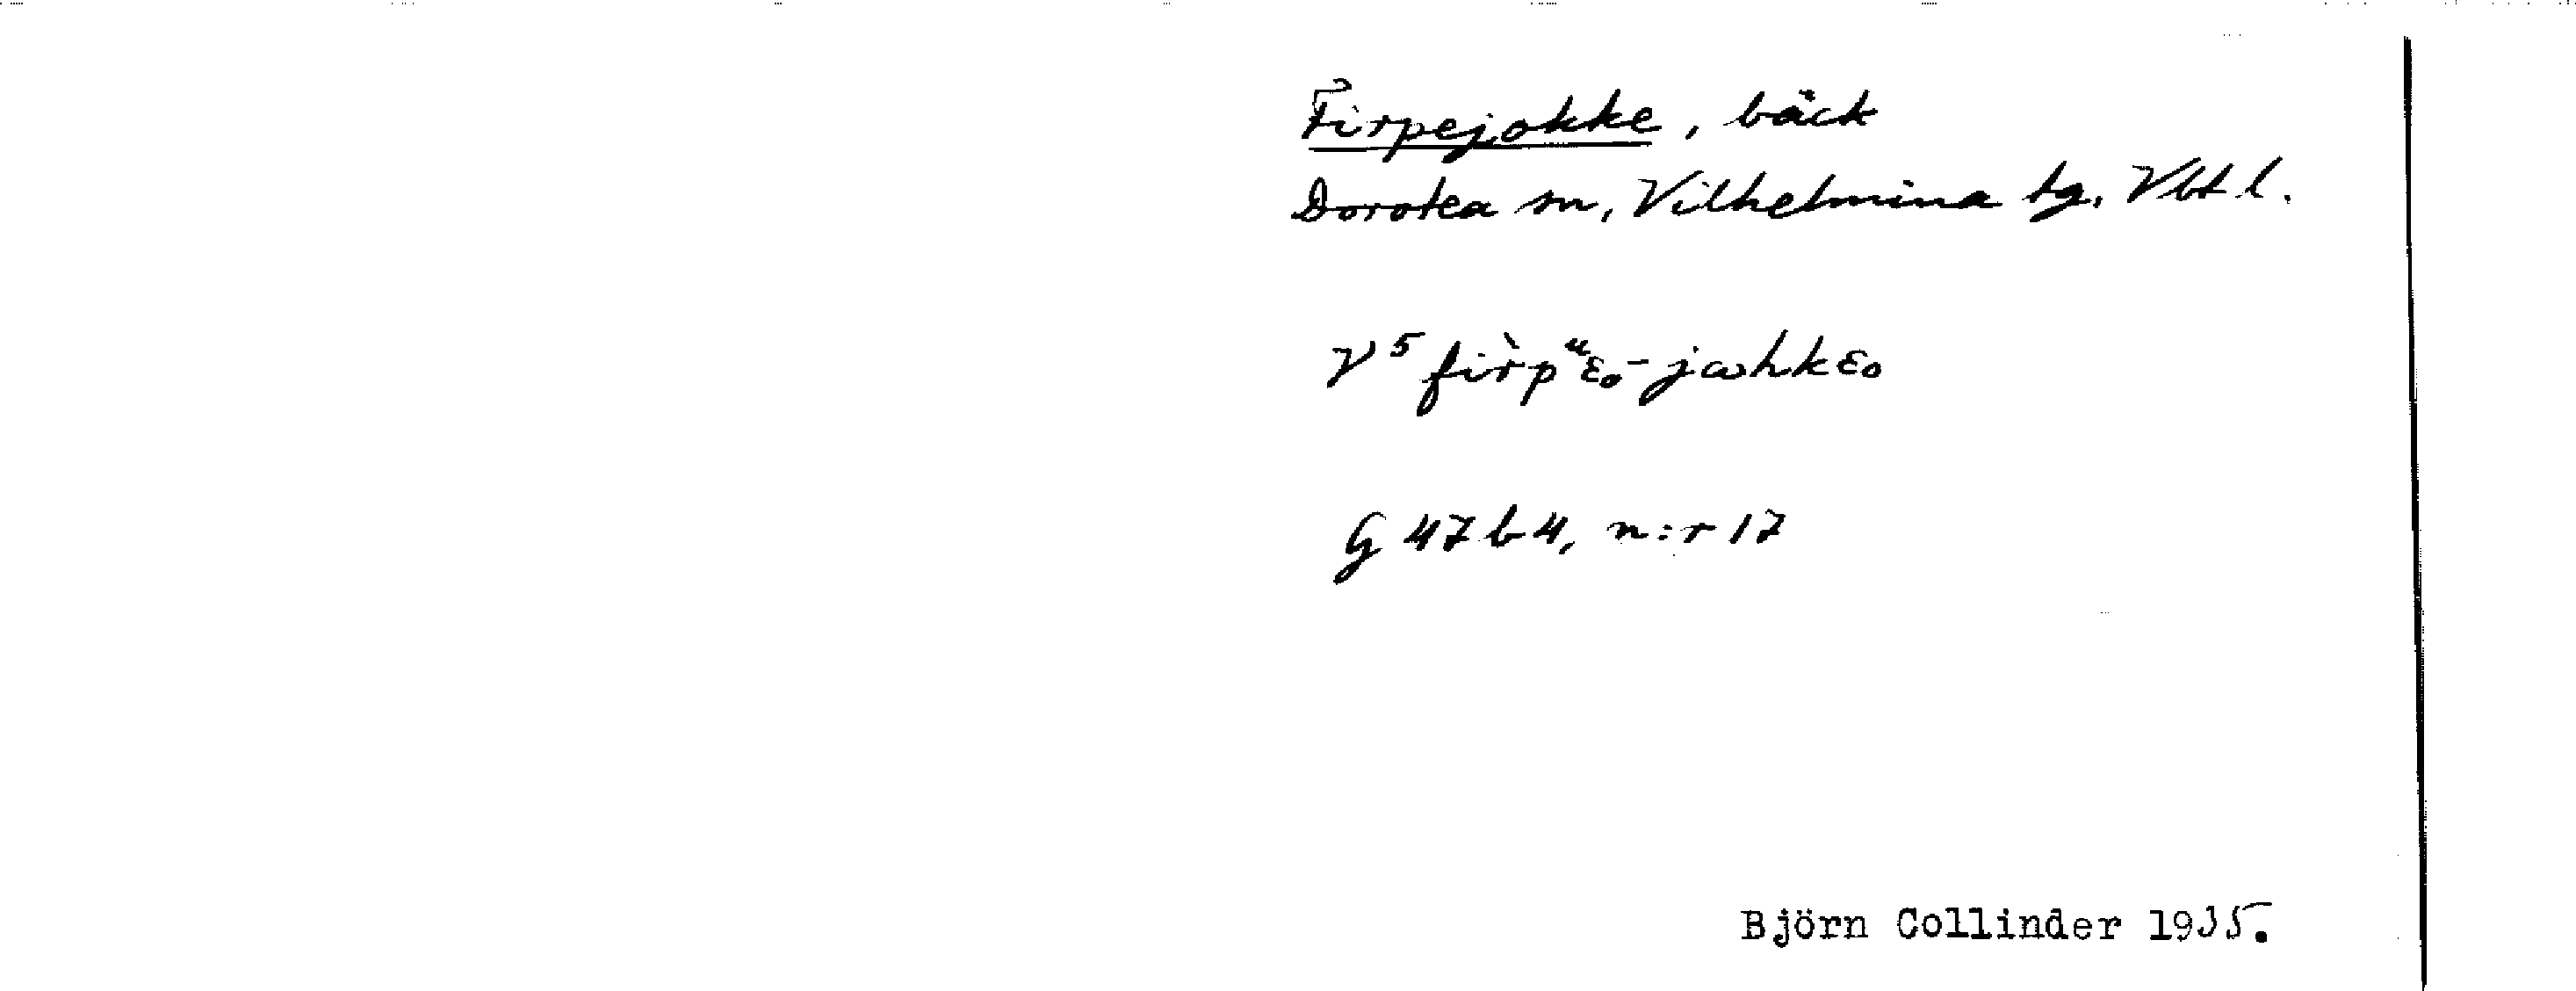 Firpejokke, bäck
Dorotea sn, Vilhelmina tg, Vbt l.
V⁵ fir̀pᵘɛ₀-jωhkɛ₀
G 47 b 4, n:r 17
Björn Collinder 1935.